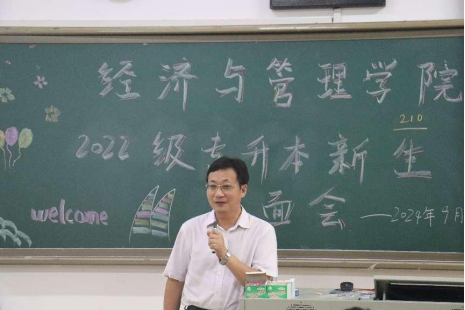 经济与管理学院
210
2022级专升本新生
welcome 面会 ——2024年9月